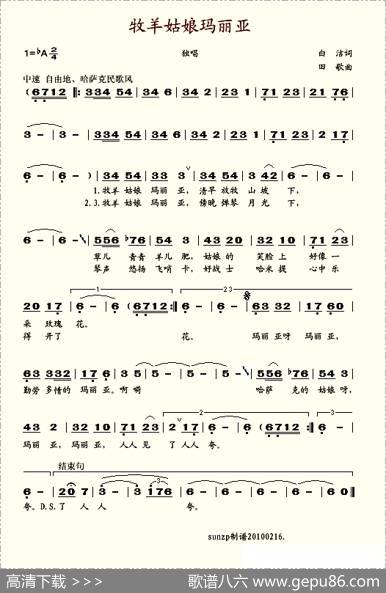 牧羊姑娘玛丽亚
1=♭A 2/4 独唱 白 洁词
田 歌曲
中速 自由地、哈萨克民歌风
(6712 ‖: 334 54 | 34 6 | 34 2 | 34 23 | 1 71 | 23 2 | 216 |
3 - | 3 - | 334 54 | 34 6 | 34 2 | 34 23 | 1 71 | 23 2 | 2 17 |
6 - | 6 - ) | 334 54 | 33 3 | 334 54 | 3 42 | 6 - | 6 - |
1.牧羊 姑娘 玛丽 亚, 清早 放牧 山 坡 下,
2.3.牧羊 姑娘 玛丽 亚, 傍晚 弹琴 月 光 下,
6 - | 6 - | 556 ♭76 | 54 3 | 34 54 | 32 10 | 6 - | 71 23 |
草儿 青青 羊儿 肥, 姑娘 的 笑脸 上 好像 一
琴声 悠扬 飞哨 卡, 好战 士 哈米 提 心中 乐
20 17 | 6 - | 6 (6712 :‖ 6 - | 6 - | 63 32 | 17 60 |
朵 玫瑰 花。
得 开了 花。 玛丽 亚呀 玛丽 亚,
63 332 | 17 16 | 5 - | 5 - | 5 - | 5 - | 556 ♭76 | 54 3 |
勤劳 多情的 玛丽 亚。啊 嗬 哈萨 克的 姑娘 呀,
43 2 | 32 10 | 71 23 | 2 17 | 6 - | 6(6712 :‖ 6 - |
玛丽 亚, 玛丽 亚, 人人 见 了 人人 夸。 夸。
结束句
6 - | 20 7 | 3 - | 3 176 | 6 - | 6 - | 6 - | 6 - ‖
夸。D.S.了 人 人 夸。
sunzp制谱20100216.
高清下载 >>> 歌谱八六 www.gepu86.com